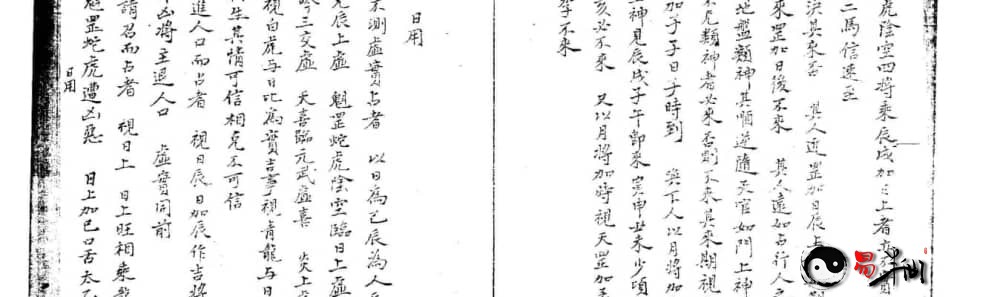 虎陰空四將乘辰戌加日上者亦
二馬信速至
決其來否　其人近罡加日辰上
來罡加日後不來　其人遠如占行人
地盤類神其順逆隨天官如門上神
不見類神者必來否則不來其來期視
加子子日子時到　與下人以月將加
上神見辰戌子午即來寅申丑未少頃
亥必不來　又以月將加時視天罡加
季不來
日用
未測虛實占者　以日為己辰為人
克辰上虛　魁罡蛇虎陰空臨日上虛
三交虛　天喜臨元武虛喜　炎上
視白虎與日比為實吉事視青龍與日
生其情可信相克不可信
進人口而占者　視日辰日加辰作吉將
凶將主退人口　虛實同前
請召而占者　視日上　日上旺相乘
魁罡蛇虎遭凶惡　日上加巳口舌太
日用
易